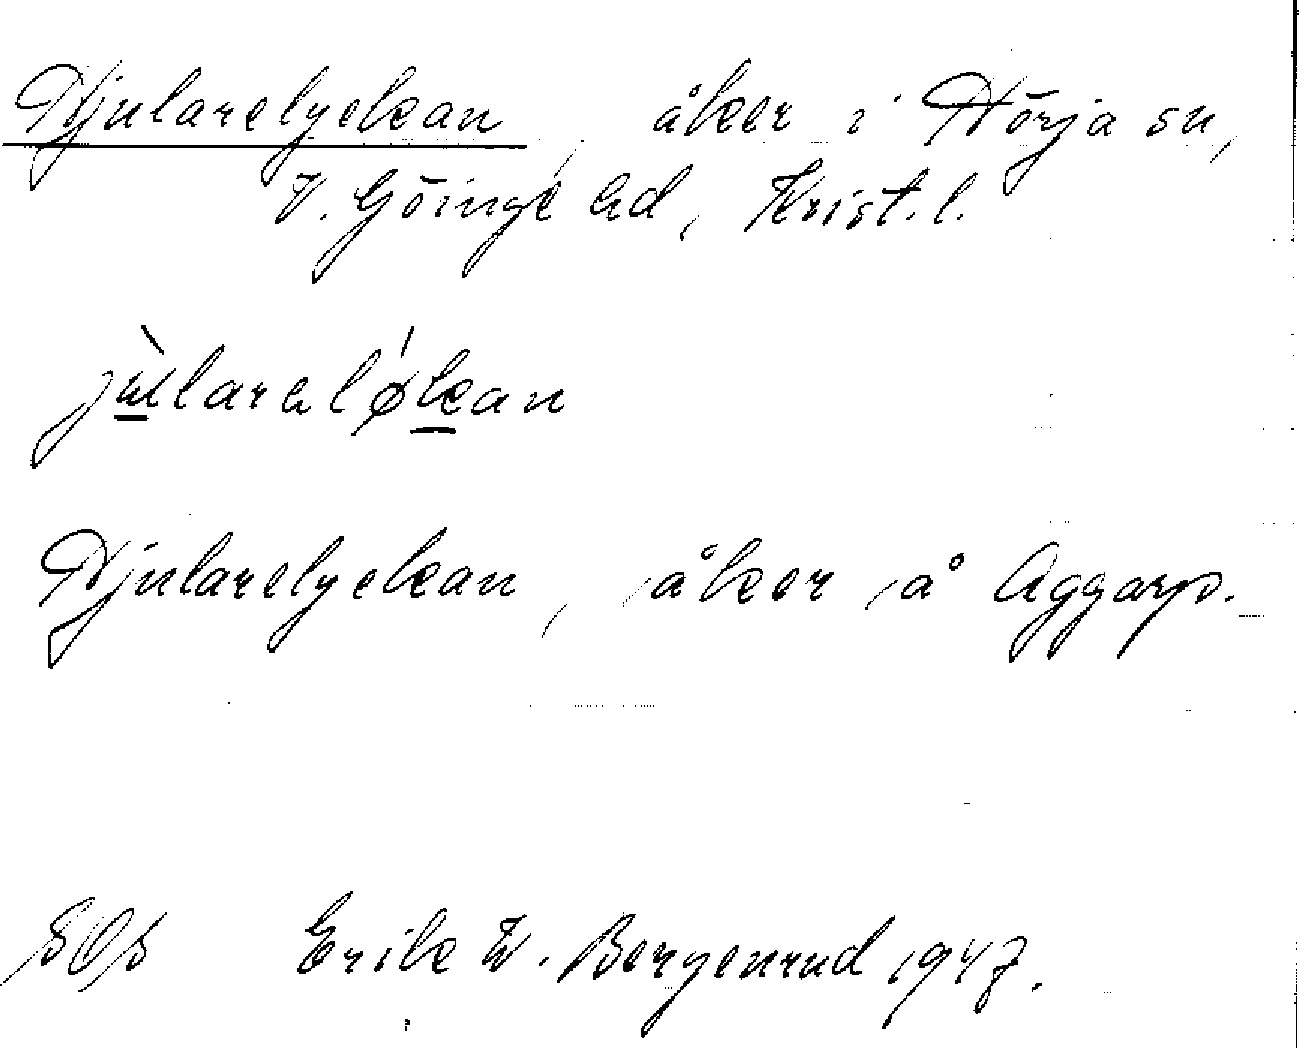 Hjularelyckan, åker i Hörja sn,
V. Göinge hd, Krist. l.
Hjularelyckan, åker å Aggarp.
SOS Erik W. Bergenrud 1947.